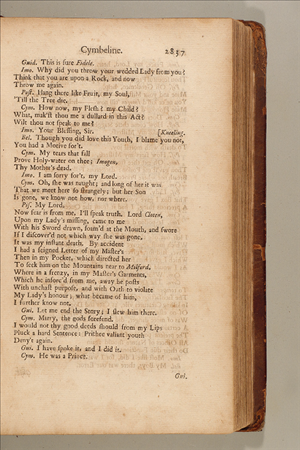 Cymbeline. 2837
Guid. This is sure Fidele.
Imo. Why did you throw your wedded Lady from you?
Think that you are upon a Rock, and now
Throw me again.
Post. Hang there like Fruit, my Soul,
'Till the Tree die.
Cym. How now, my Flesh? my Child?
What, mak'st thou me a dullard in this Act?
Wilt thou not speak to me?
Imo. Your Blessing, Sir. [Kneeling.
Bel. Though you did love this Youth, I blame you not,
You had a Motive for't.
Cym. My tears that fall
Prove Holy-water on thee; Imogen,
Thy Mother's dead.
Imo. I am sorry for't, my Lord.
Cym. Oh, she was naught; and long of her it was
That we meet here so strangely; but her Son
Is gone, we know not how, nor where.
Pis. My Lord,
Now fear is from me, I'll speak truth. Lord Cloten,
Upon my Lady's missing, came to me
With his Sword drawn, foam'd at the Mouth, and swore
If I discover'd not which way she was gone,
It was my instant death. By accident
I had a feigned Letter of my Master's
Then in my Pocket, which directed her
To seek him on the Mountains near to Milford,
Where in a frenzy, in my Master's Garments,
Which he inforc'd from me, away he posts
With unchast purpose, and with Oath to violate
My Lady's honour; what became of him,
I further know not.
Gui. Let me end the Story; I slew him there.
Cym. Marry, the gods forefend.
I would not thy good deeds should from my Lips
Pluck a hard Sentence: Prithee valiant youth
Deny't again.
Gui. I have spoke it, and I did it.
Cym. He was a Prince.
Gui.